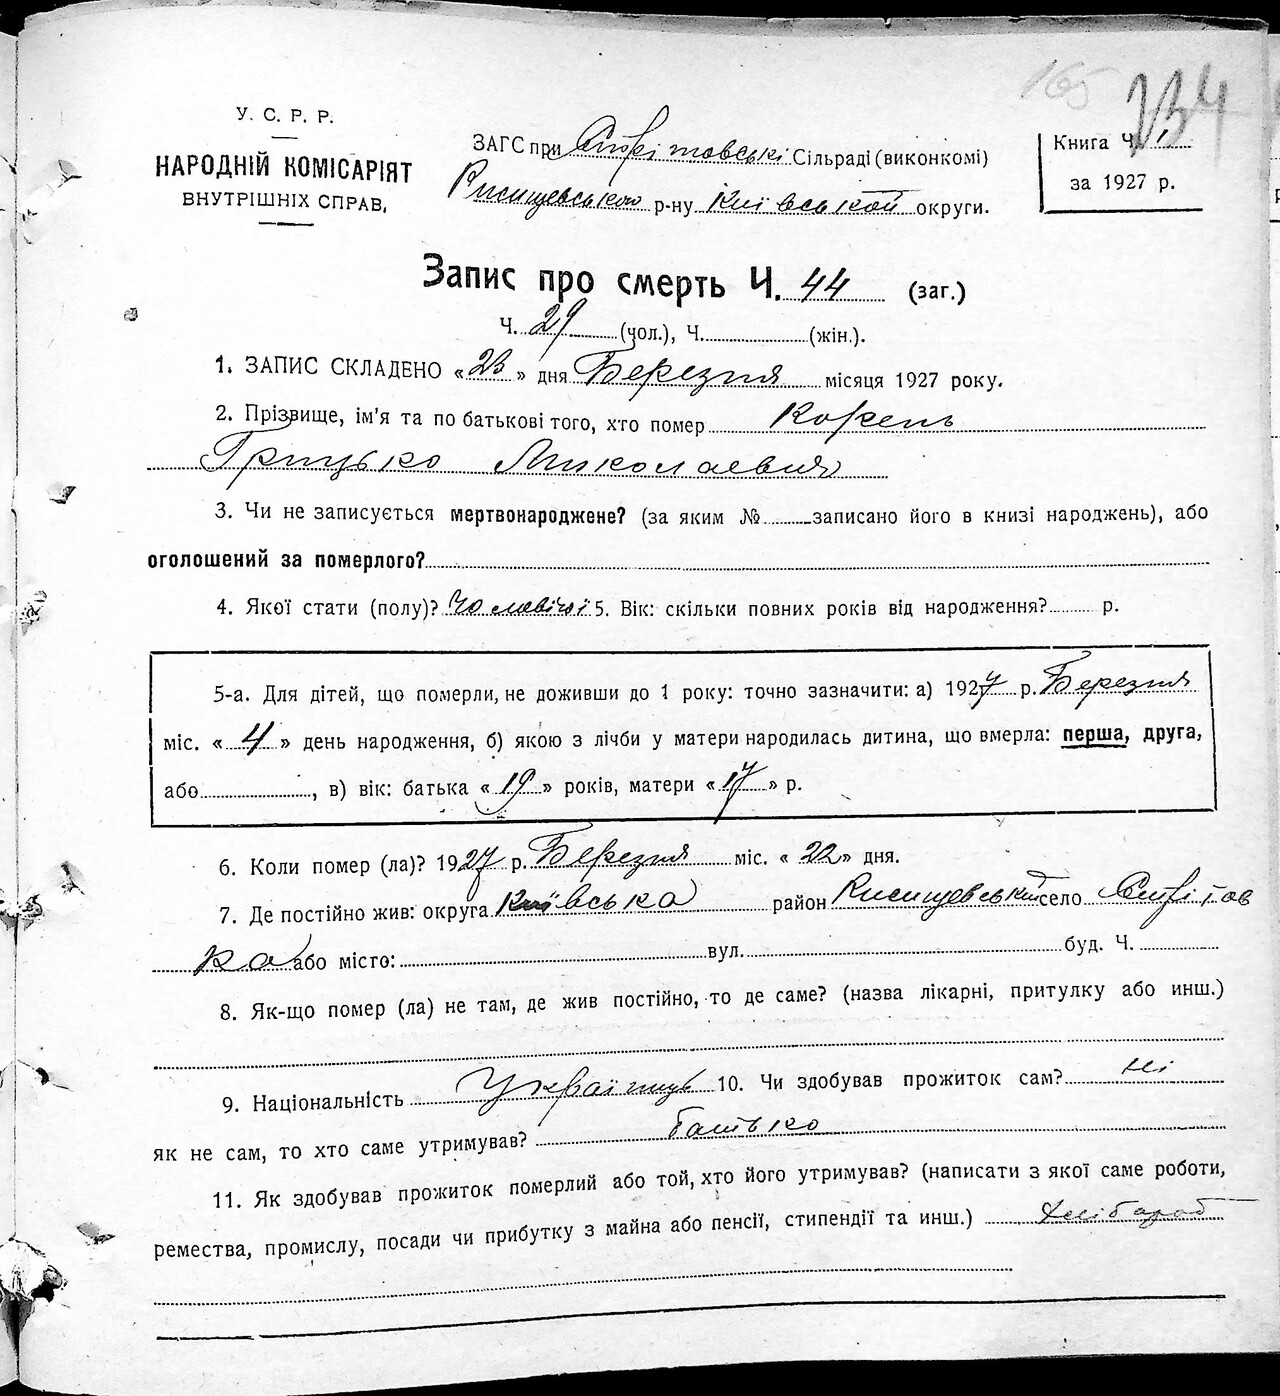 165 334
У. С. Р. Р.
НАРОДНІЙ КОМІСАРІЯТ
ВНУТРІШНІХ СПРАВ,
ЗАГС при Сільраді (виконкомі)
р-ну Київської округи.
Книга Ч. 1
за 1927 р.
Запис про смерть Ч. 44 (заг.)
Ч. 29 (чол.), Ч. (жін.).
1. ЗАПИС СКЛАДЕНО «23» дня Березня місяця 1927 року.
2. Прізвище, ім'я та по батькові того, хто помер Корень
Грицько Миколаевич
3. Чи не записується мертвонароджене? (за яким № записано його в книзі народжень), або
оголошений за померлого?
4. Якої стати (полу)? Чоловічої 5. Вік: скільки повних років від народження? р.
5-а. Для дітей, що померли, не доживши до 1 року: точно зазначити: а) 1927 р. Березня
міс. «4» день народження, б) якою з лічби у матери народилась дитина, що вмерла: перша, друга,
або , в) вік: батька «19» років, матери «17» р.
6. Коли помер (ла)? 1927 р. Березня міс. «22» дня.
7. Де постійно жив: округа Київська район село
або місто: вул. буд. Ч.
8. Як-що помер (ла) не там, де жив постійно, то де саме? (назва лікарні, притулку або инш.)
9. Національність Українець 10. Чи здобував прожиток сам? ні
як не сам, то хто саме утримував? батько
11. Як здобував прожиток померлий або той, хто його утримував? (написати з якої саме роботи,
ремества, промислу, посади чи прибутку з майна або пенсії, стипендії та инш.) хлібороб